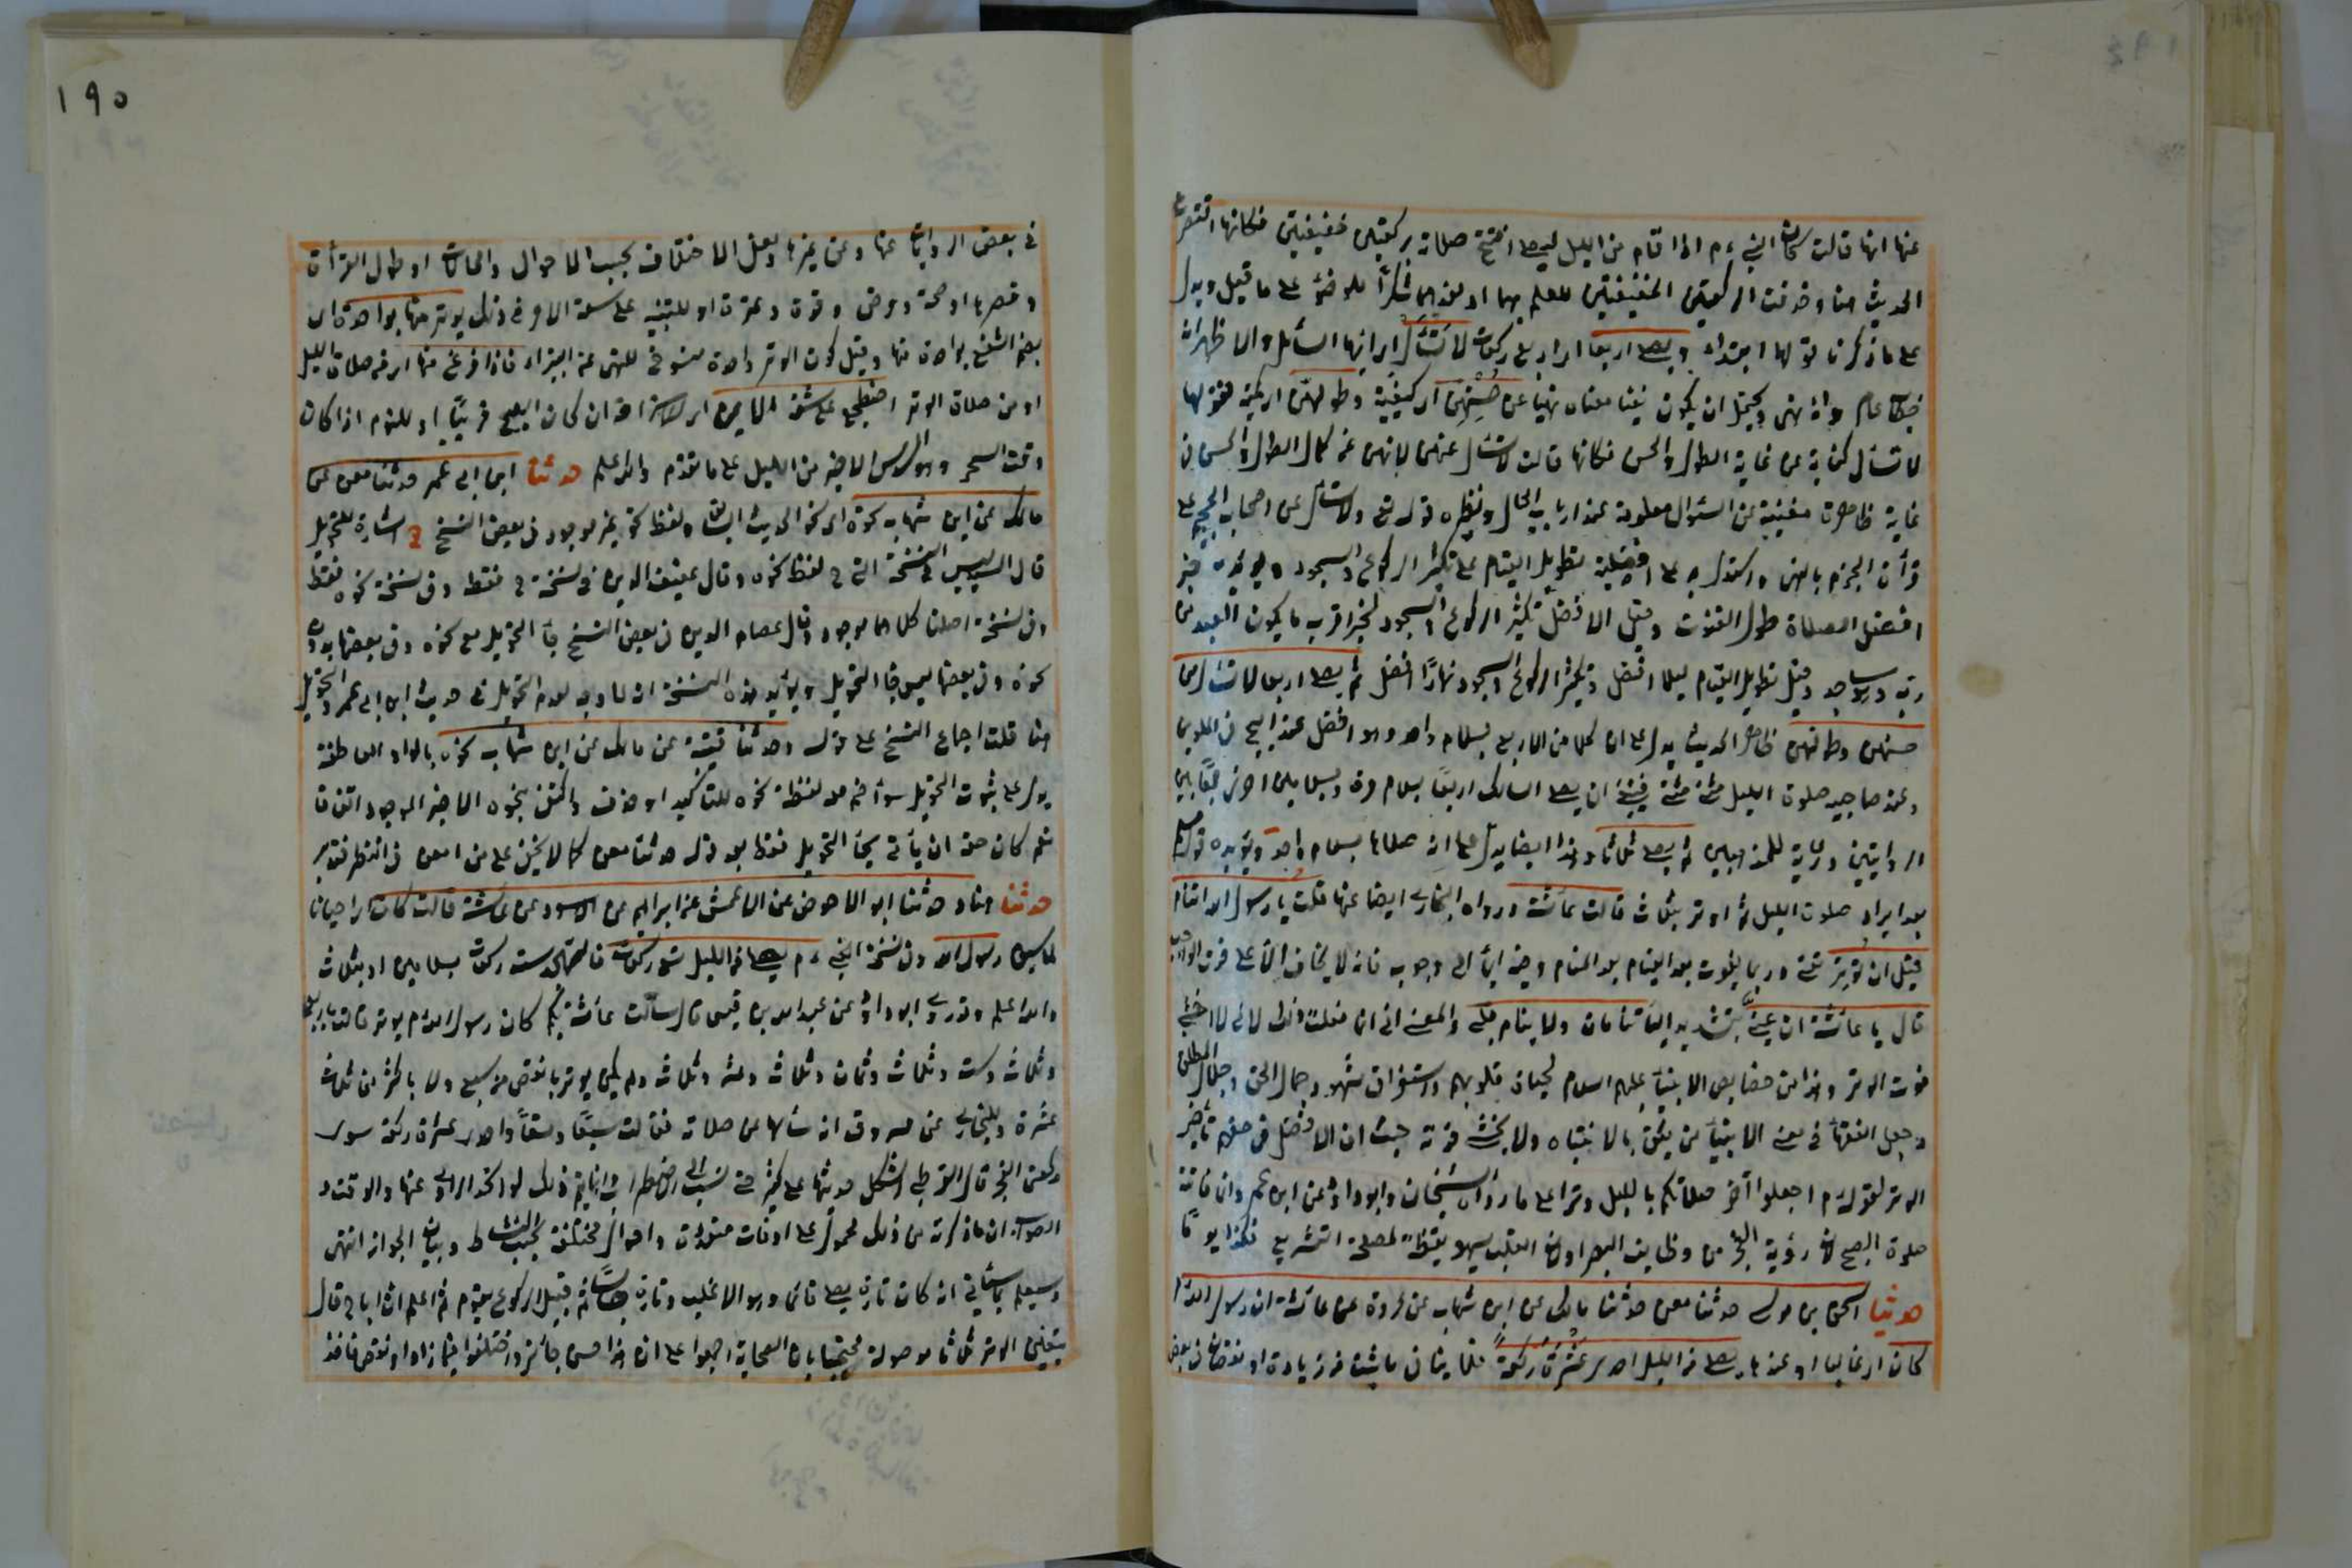 عنها انها قالت كان النبي ءم اذا قام من الليل ليصلي افتتح صلاته بركعتين خفيفتين فكانها اقتصرت
الحديث هنا وحذفت الركعتين الخفيفتين للعلم بهما او لعدهما شكرًا للوضوء على ما قيل ويدل
على ما ذكرنا قولها ابتداء يصلي اربعا اي اربع ركعات لا تسأل ايها السائل والاظهر انه
خطاب عام وانه نهى ويحتمل ان يكون نفيا معناه نهيا عن حسنهن اي كيفية وطولهن اي كمية فقولها
لا تسأل كناية عن غاية الطول والحسن فكانها قالت لا تسأل عنهن لانهن من كمال الطول والحسن في
غاية ظاهرة مغنية عن السئوال معلومة عند ارباب الحال ونظيره قوله تعالى ولا تسأل عن اصحاب الجحيم على
قرأة الجزم بالنهى واستدل به على افضلية تطويل القيام على تكثير الركوع والسجود ويؤيده خبر
افضل الصلاة طول القنوت وقيل الافضل تكثير الركوع والسجود لخبر اقرب ما يكون العبد من
ربه وهو ساجد وقيل تطويل القيام ليلا افضل وتكثير الركوع والسجود نهارًا افضل ثم يصلي اربعا لا تسأل عن
حسنهن وطولهن ظاهر الحديث يدل على ان كلا من الاربع بسلام واحد وهو افضل عند ابى ح في الملوين
وعند صاحبيه صلوة الليل مثنى مثنى فينبغي ان يصلي السالك اربعًا بسلام مرة وبسلامين اخرى جمعًا بين
الروايتين ورعاية للمذهبين ثم يصلي ثلاثا وهذا ايضا يدل على انه صلاها بسلام واحد ويؤيده
بعد ايراد صلوة الليل ثم اوتر بثلاث قالت عائشة ورواه البخاري ايضا عنها قلت يا رسول الله اتنام
قبل ان توتر وربما يفوت بعد القيام بعد المنام وفيه ايماء الى وجوبه فانه لا يخاف الا على فوت الواجب
قال يا عائشة ان عيني بتشديد الياء تنامان ولا ينام قلبي والمعنى اني انما فعلت ذلك لاني لا اخشى
فوت الوتر وهذا من خصايص الانبياء عليهم السلام لحياة قلوبهم واستغراق شهود جمال الحق وجلال المطلق
وجعل الفقهاء في معنى الانبياء من يثق بالانتباه ولا يخشى فوته حيث ان الافضل في حقه تأخير
الوتر لقوله ءم اجعلوا آخر صلاتكم بالليل وترا على ما رواه الشيخان وابو داود عن ابن عمر وانما فاتته
صلوة الصبح لان رؤية الفجر من وظايف البصر اولان القلب يسهو يقظة لمصلحة التشريع فكذا نوما
حدثنا اسحق بن موسى حدثنا معن حدثنا مالك عن ابن شهاب عن عروة عن عائشة ان رسول الله ءم
كان اي غالبا او عندها يصلي من الليل احدى عشرة ركعة فلا ينافي ما ثبت من زيادة او نقصان في بعض
في بعض الروايات عنها وعن غيرها ولعل الاختلاف بحسب الاحوال والحالات او طول القرأة
وقصرها او صحة ومرض وقوة وفترة او للتنبيه على سعة الامر في ذلك يوتر منها بواحدة اي
يضم الشفع بواحدة منها وقيل كون الوتر واحدة منسوخ للنهى عن البتيراء فاذا فرغ منها اي من صلاة الليل
او من صلاة الوتر اضطجع على شقه الايمن اي للاستراحة ان كان الصبح قريبًا او للنوم اذا كان
وقت السحر وهو السدس الاخير من الليل على ما تقدم والله اعلم حدثنا ابن ابي عمر حدثنا معن عن
مالك عن ابن شهاب نحوه اي نحو الحديث السابق ولفظ نحوه غير موجود في بعض النسخ ح اشارة للتحويل
قال السيد ليس في النسخة التي ح لفظ نحوه وقال عفيف الدين في نسخة ح فقط وفي نسخة نحوه فقط
وفي نسخة اصلنا كلاهما موجود وقال عصام الدين في بعض النسخ حاء التحويل مع نحوه وفي بعضها بدون
نحوه وفي بعضها ليس حاء التحويل ويؤيد هذه النسخة انه لا وجه لعدم التحويل في حديث ابن ابي عمر والتحويل
هنا قلت اجماع النسخ على قوله وحدثنا قتيبة عن مالك عن ابن شهاب نحوه بالواو العاطفة
يدل على ثبوت التحويل سواء ضم معه لفظة نحوه للتاكيد او حذفت واكتفى بنحوه الاخير الموجود اتفاقا
نعم كان حقه ان يأتي بحاء التحويل فقط بعد قوله حدثنا معن كما لا يخفى على من امعن في النظر فتدبر
حدثنا هناد حدثنا ابو الاحوص عن الاعمش عن ابراهيم عن الاسود عن عائشة قالت كان اي احيانا
رسول الله وفي نسخة النبي ءم يصلي من الليل تسع ركعات فالتهجد ست ركعات بسلامين او بثلاث
والله اعلم وقد روى ابو داود عن عبد الله بن قيس قال سألت عائشة بكم كان رسول الله ءم يوتر قالت باربع
وثلاث وست وثلاث وثمان وثلاث وعشر وثلاث ولم يكن يوتر بانقص من سبع ولا باكثر من ثلاث
عشرة وللبخاري عن مسروق انه سألها عن صلاته فقالت سبعًا وتسعًا واحدى عشرة ركعة سوى
ركعتي الفجر قال القرطبي اشكل حديثها على كثير حتى نسب الى الاضطراب وانما يتم ذلك لو اتحد الراوي عنها والوقت و
الصواب ان ما ذكرته من ذلك محمول على اوقات متعددة واحوال مختلفة بحسب النشاط وبيان الجواز انتهى
وسيعلم مما سيأتي انه كان تارة يصلي قائما وهو الاغلب وتارة جالسًا ثم قبيل الركوع يقوم ثم اعلم ان ابا ح قال
بتعيين الوتر ثلاثا موصولة محتجا بان الصحابة اجمعوا على ان هذا حسن جائز واختلفوا فيما زاد او نقص فاخذ
١٩٥